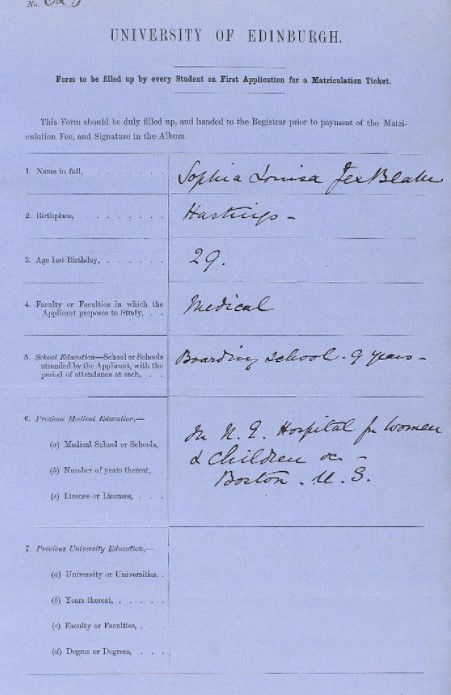 No.
UNIVERSITY OF EDINBURGH.
Form to be filled up by every Student on First Application for a Matriculation Ticket.
This Form should be duly filled up, and handed to the Registrar prior to payment of the Matri-
culation Fee, and Signature in the Album.
1. Name in full, . . . . . . . Sophia Louisa Jex Blake
2. Birthplace, . . . . . . . . Hastings -
3. Age last Birthday, . . . . . . 29.
4. Faculty or Faculties in which the
Applicant proposes to Study, . . Medical
5. School Education—School or Schools
attended by the Applicant, with the
period of attendance at each. . . Boarding school . 9 years -
6. Previous Medical Education,—
(a) Medical School or Schools,
(b) Number of years thereat, .
(c) License or Licenses, . .
In N. E. Hospital for Women
& Children &c -
Boston . U. S.
7. Previous University Education,—
(a) University or Universities, .
(b) Years thereat, . . . . .
(c) Faculty or Faculties, . . .
(d) Degree or Degrees, . . . .